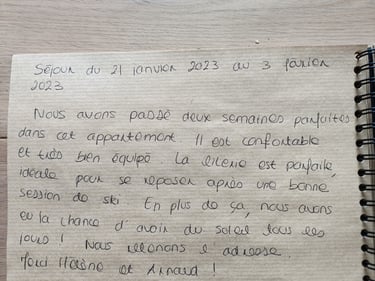 Séjour du 21 janvier 2023 au 3 février
2023
Nous avons passé deux semaines parfaites
dans cet appartement. Il est confortable
et très bien équipé. La literie est parfaite,
idéale pour se reposer après une bonne
session de ski. En plus de ça, nous avons
eu la chance d'avoir du soleil tous les
jours ! Nous retenons l'adresse.
Merci Hélène et Arnaud !